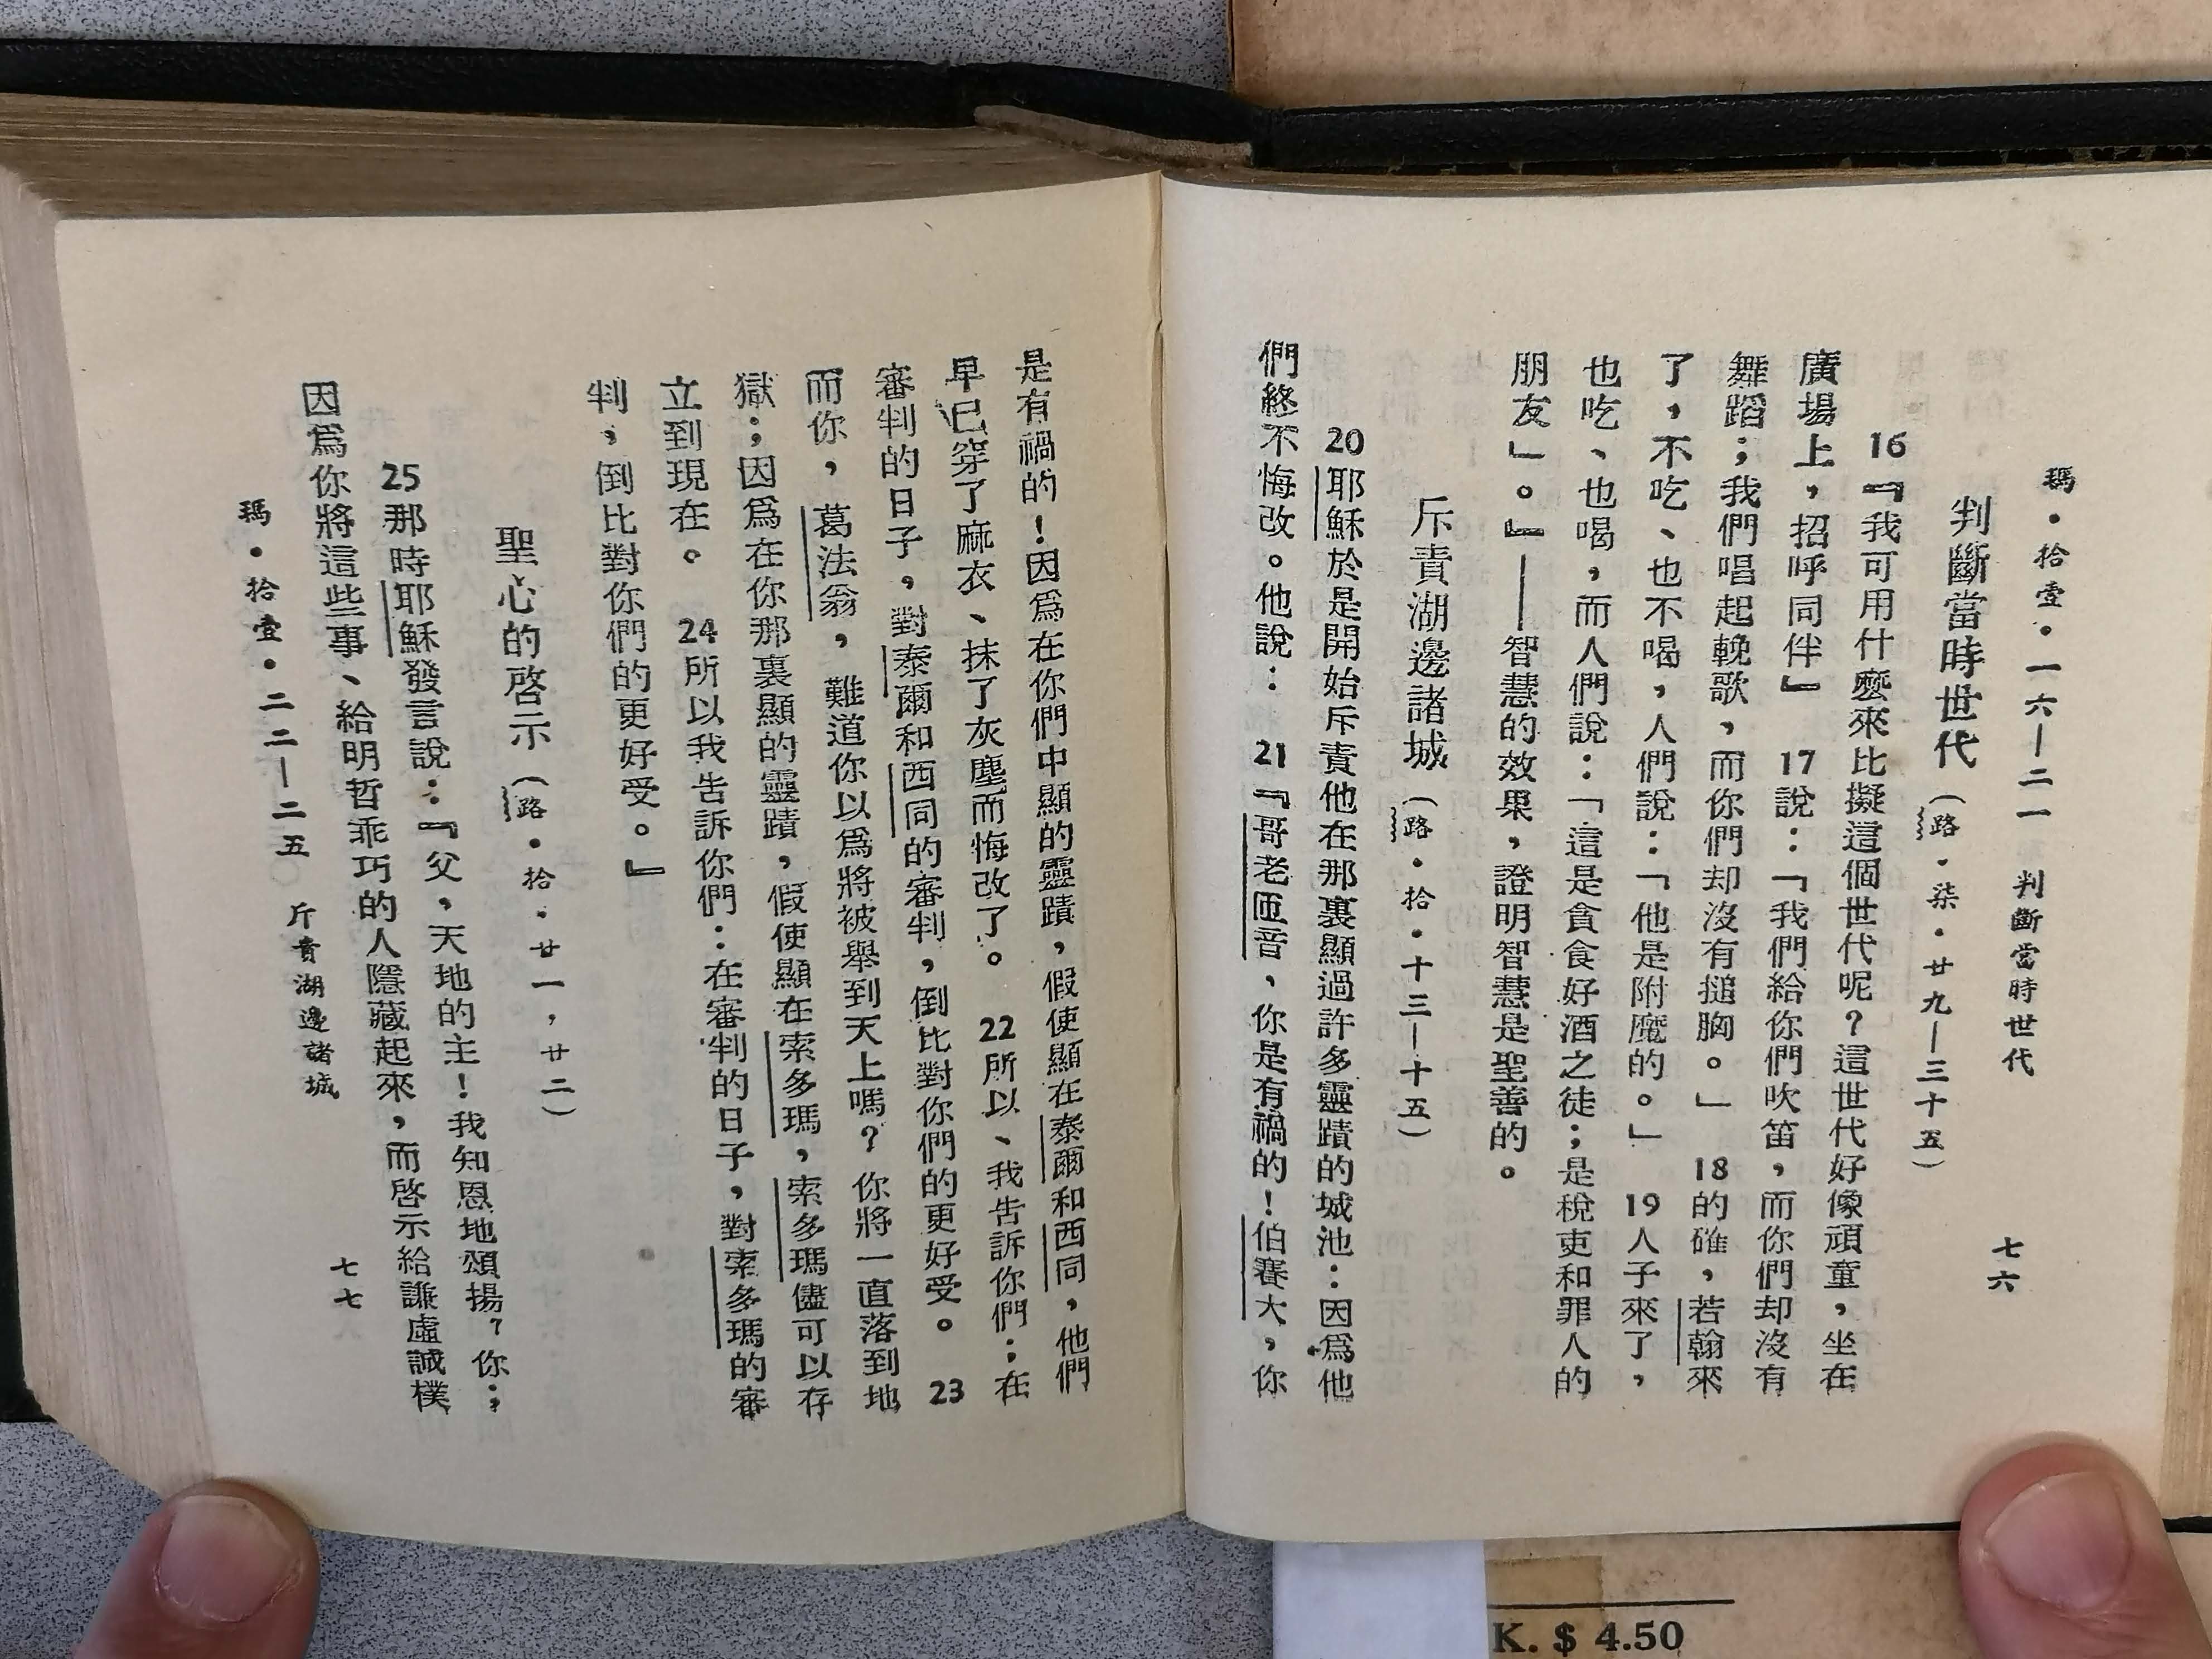 瑪・拾壹・一六—二一 判斷當時世代 七六
判斷當時世代（路・柒・廿九—三十五）
16『我可用什麼來比擬這個世代呢？這世代好像頑童，坐在
廣場上，招呼同伴』 17說：「我們給你們吹笛，而你們却沒有
舞蹈；我們唱起輓歌，而你們却沒有搥胸。」 18的確，若翰來
了，不吃、也不喝，人們說：「他是附魔的。」 19人子來了，
也吃、也喝，而人們說：「這是貪食好酒之徒；是稅吏和罪人的
朋友」。』——智慧的效果，證明智慧是聖善的。
斥責湖邊諸城（路・拾・十三—十五）
20耶穌於是開始斥責他在那裏顯過許多靈蹟的城池：因爲他
們終不悔改。他說： 21『哥老匝音，你是有禍的！伯賽大，你
是有禍的！因爲在你們中顯的靈蹟，假使顯在泰爾和西同，他們
早已穿了麻衣、抹了灰塵而悔改了。 22所以、我告訴你們；在
審判的日子，對泰爾和西同的審判，倒比對你們的更好受。 23
而你，葛法翁，難道你以爲將被舉到天上嗎？你將一直落到地
獄；因爲在你那裏顯的靈蹟，假使顯在索多瑪，索多瑪儘可以存
立到現在。 24所以我告訴你們：在審判的日子，對索多瑪的審
判，倒比對你們的更好受。』
聖心的啓示（路・拾・廿一，廿二）
25那時耶穌發言說：『父，天地的主！我知恩地頌揚？你；
因爲你將這些事、給明哲乖巧的人隱藏起來，而啓示給謙虛誠樸
瑪・拾壹・二二—二五 斥責湖邊諸城 七七
K. $ 4.50